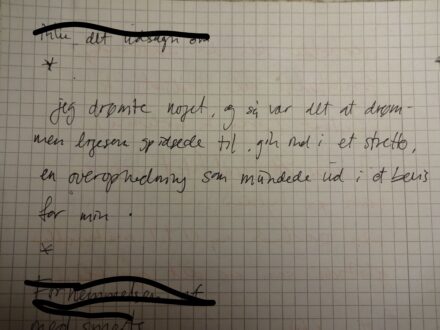 det udsagn
*
jeg drømte noget, og så var det at drøm-
men ligesom spidsede til, gik ind i et stretto,
en overophedning som mundede ud i et bevis
for min .
*
med smerte